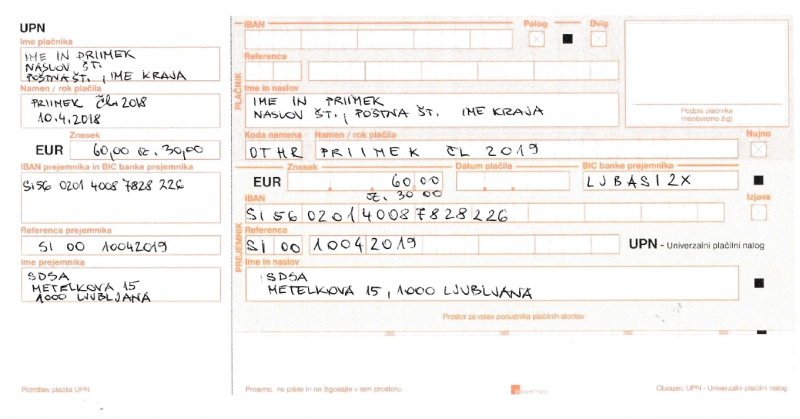 UPN
Ime plačnika
IME IN PRIIMEK
NASLOV ŠT.
POŠTNA ŠT., IME KRAJA
Namen / rok plačila
PRIIMEK ČL. 2018
10.4.2018
Znesek
EUR 60,00 oz. 30,00
IBAN prejemnika in BIC banke prejemnika
SI56 0201 4008 7828 226
Referenca prejemnika
SI 00 10042019
Ime prejemnika
SDSA
METELKOVA 15
1000 LJUBLJANA
Potrditev plačila UPN
PLAČNIK
IBAN
Polog
Dvig
Referenca
Ime in naslov
IME IN PRIIMEK
NASLOV ŠT., POŠTNA ŠT. IME KRAJA
Podpis plačnika
(neobvezno žig)
Koda namena
Namen / rok plačila
Nujno
OTHR PRIIMEK ČL 2019
Znesek
Datum plačila
BIC banke prejemnika
EUR 60,00
oz. 30 00
LJBASI2X
PREJEMNIK
IBAN
Izjava
SI56 0201 4008 7828 226
Referenca
SI 00 10042019
UPN - Univerzalni plačilni nalog
Ime in naslov
SDSA
METELKOVA 15, 1000 LJUBLJANA
Prostor za vpise ponudnika plačilnih storitev
Prosimo, ne pišite in ne žigosajte v tem prostoru.
Obrazec UPN - Univerzalni plačilni nalog